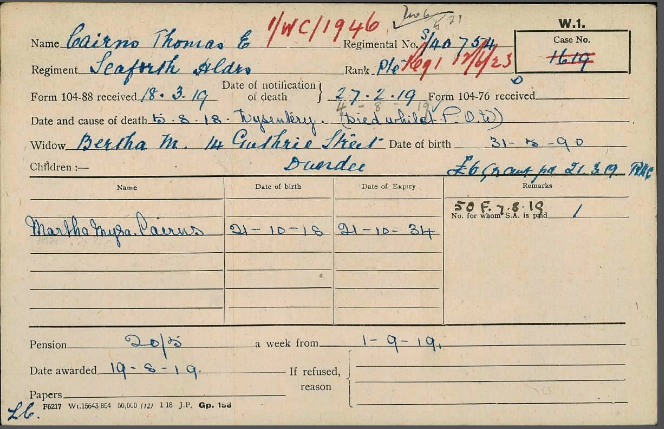 1/WC/1946
W.1.
Name Cairns Thomas E Regimental No. S/40754 Case No.
Regiment Seaforth Hldrs Rank Pte Reg1 12/6/23 1619
Form 104-88 received 18.3.19 Date of notification of death } 27.2.19 Form 104-76 received
4-8-19
Date and cause of death 5.8.18. Dysentery. (Died whilst P.O.W)
Widow Bertha M. 14 Guthrie Street Date of birth 31-8-90
Children :— Dundee £6 Grant pd 21.3.19
Name Date of birth Date of Expiry Remarks
50 F. 7.8.19
No. for whom S.A. is paid 1
Martha Myra Cairns 21-10-18 21-10-34
Pension 20/5 a week from 1-9-19.
Date awarded 19-8-19. If refused, reason {
Papers
F6217 Wt.15643/864 60,000 (12) 1/18 J.P. Gp. 153